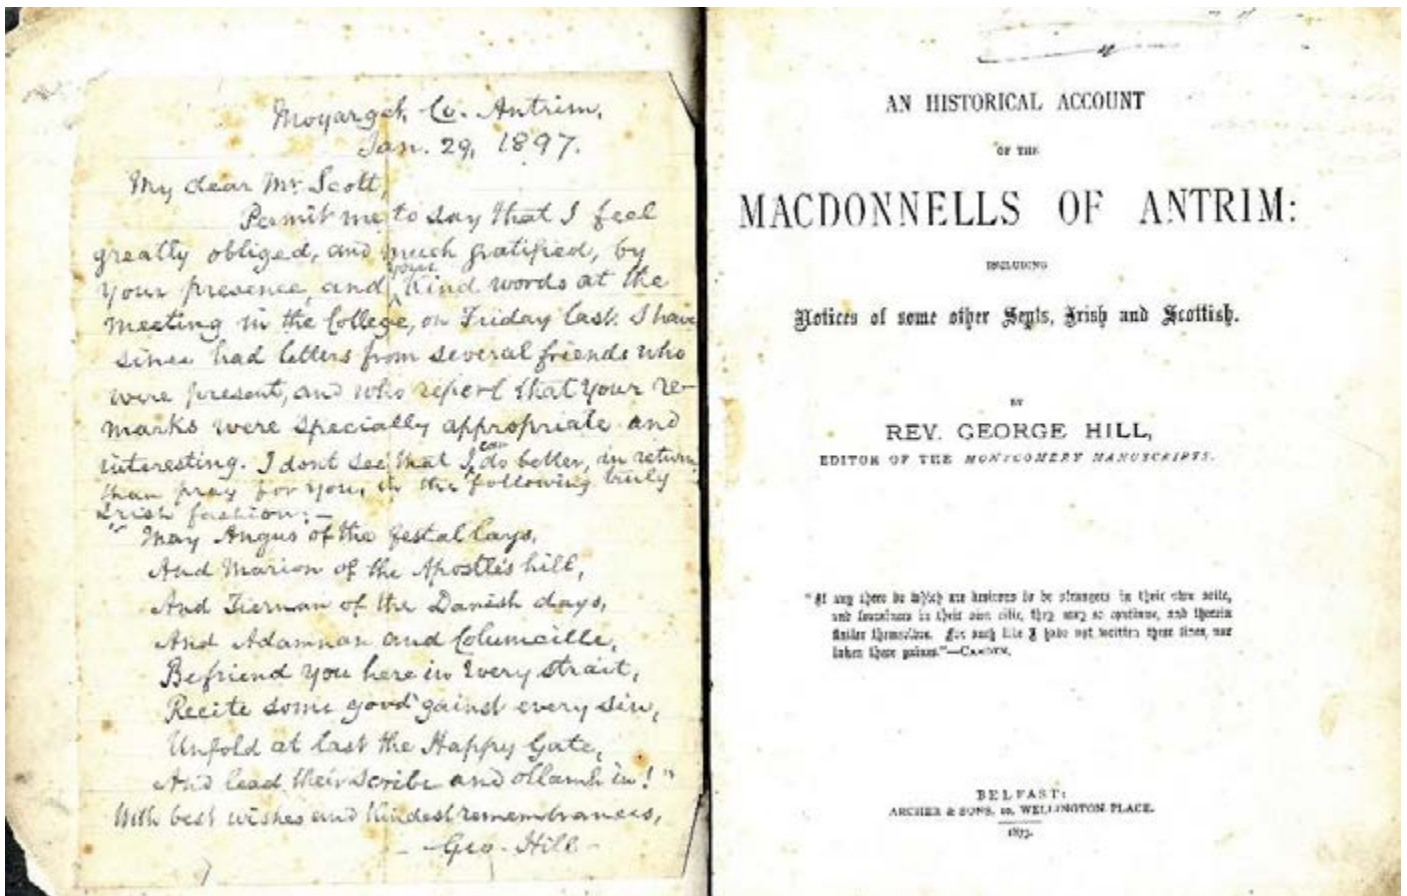 Moyarget, Co. Antrim,
Jan. 29, 1897.
My dear Mr Scott,
Permit me to say that I feel
greatly obliged, and much gratified, by
your presence, and your kind words at the
meeting in the College, on Friday last. I have
since had letters from several friends who
were present, and who report that your re-
marks were specially appropriate and
interesting. I dont see that I can do better, in return
than pray for you, in the following truly
Irish fashion:-
"May Angus of the festal lays,
And Marion of the Apostles hill,
And Tiernan of the Danish days,
And Adamnan and Columcille,
Befriend you here in every strait,
Recite some good 'gainst every sin,
Unfold at last the Happy Gate,
And lead their scribe and ollamh in!"
With best wishes and kindest remembrances,
- Geo. Hill -
AN HISTORICAL ACCOUNT
OF THE
MACDONNELLS OF ANTRIM:
INCLUDING
Notices of some other Septs, Irish and Scottish.
BY
REV. GEORGE HILL,
EDITOR OF THE MONTGOMERY MANUSCRIPTS.
"If any there be which are desirous to be strangers in their own soile,
and forrainers in their own citie, they may so continue, and therein
flatter themselves. For such like I have not written these lines, nor
taken these paines."—CAMDEN.
BELFAST:
ARCHER & SONS, 10, WELLINGTON PLACE.
1873.